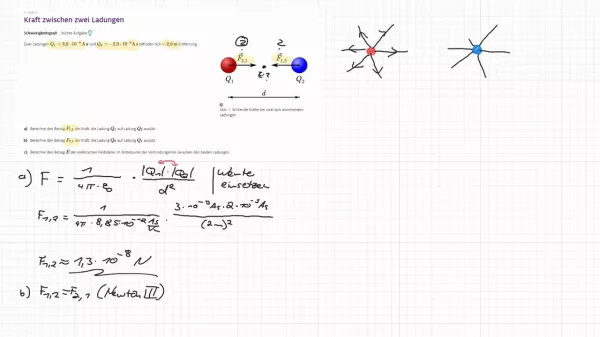 Kraft zwischen zwei Ladungen
Schwierigkeitsgrad: leichte Aufgabe
Zwei Ladungen Q₁ = 3,0 · 10⁻⁹ A s und Q₂ = −2,0 · 10⁻⁹ A s befinden sich d = 2,0 m entfernt.
F⃗₂,₁ F⃗₁,₂
E?
Q₁ Q₂
d
Abb. 1 Wirkende Kräfte bei zwei sich anziehenden Ladungen
a) Berechne den Betrag F₁,₂ der Kraft, die Ladung Q₁ auf Ladung Q₂ ausübt.
b) Berechne den Betrag F₂,₁ der Kraft, die Ladung Q₂ auf Ladung Q₁ ausübt.
c) Berechne den Betrag E der elektrischen Feldstärke im Mittelpunkt der Verbindungslinie zwischen den beiden Ladungen.
a) F = 1 / 4π · ε₀ · |Q₁| · |Q₂| / d² | Werte einsetzen
F₁,₂ = 1 / 4π · 8,85 · 10⁻¹² As/Vm
(2m)²
F₁,₂ ≈ 1,3 · 10⁻⁸ N
b) F₁,₂ = F₂,₁ (Newton III)